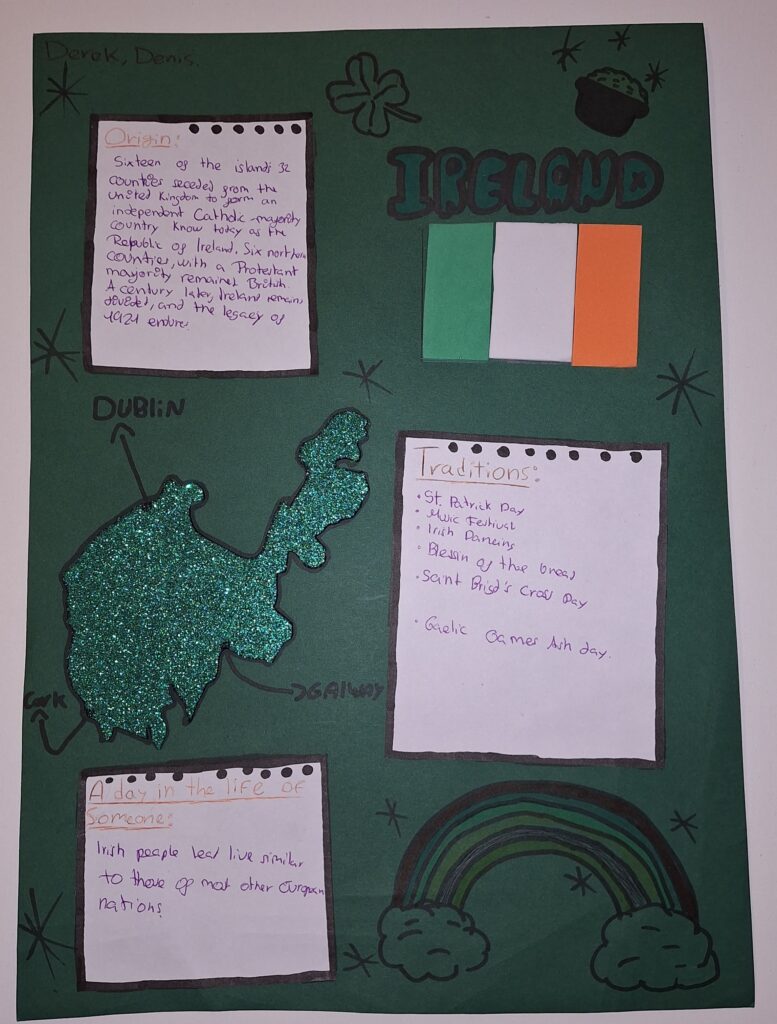 Derek, Denis.
IRELAND
Origin:
Sixteen of the islands 32
counties seceded from the
United Kingdom to form an
independent Catholic-majority
country know today as the
Republic of Ireland. Six northern
counties, with a Protestant
majority remained British.
A century later, Ireland remains
divided, and the legacy of
1921 endures.
DUBLIN
GALWAY
Cork
Traditions:
• St. Patrick Day
• Music Festival
• Irish Dancins
• Blessin of the bread
• Saint Brigid's Cross Day
• Gaelic Games Ash day.
A day in the life of
Someone:
Irish people lead live similar
to those of most other European
nations.